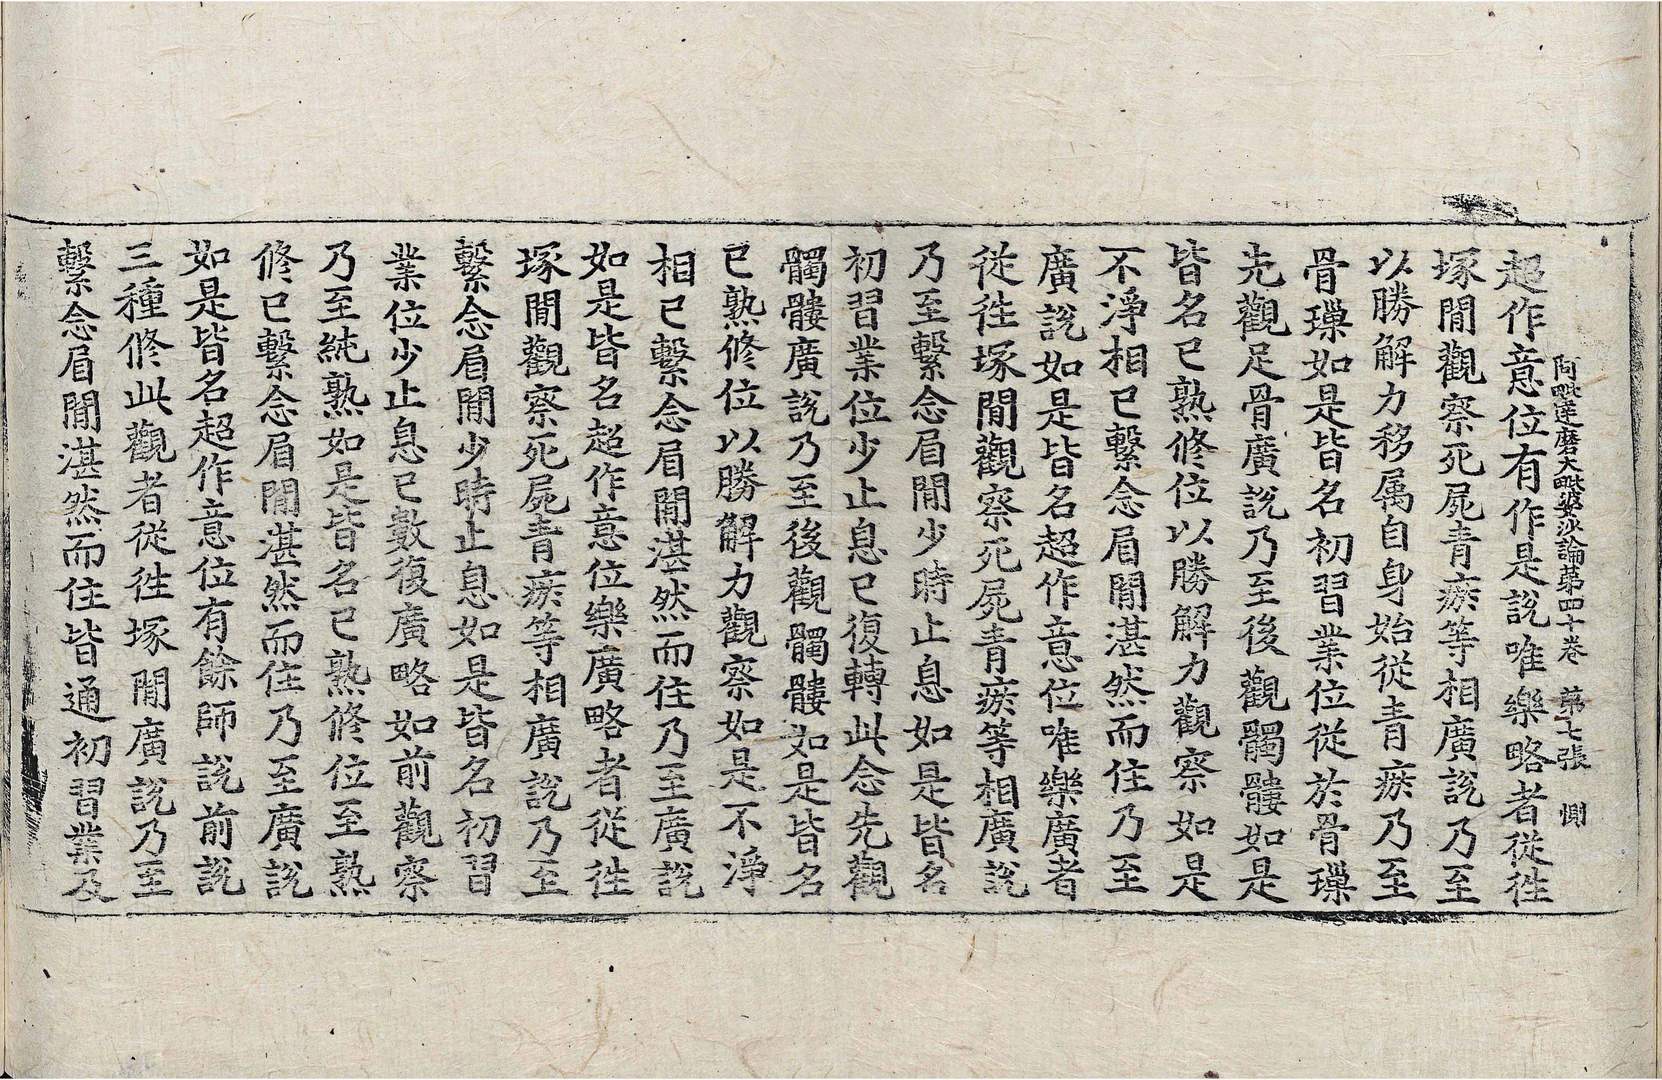 阿毗達磨大毗婆沙論第四十卷　第七張　惻
超作意位有作是說唯樂略者從徃
塚閒觀察死屍青瘀等相廣說乃至
以勝解力移属自身始從青瘀乃至
骨璅如是皆名初習業位從於骨璅
先觀足骨廣說乃至後觀髑髏如是
皆名已熟修位以勝解力觀察如是
不淨相已繫念眉閒湛然而住乃至
廣說如是皆名超作意位唯樂廣者
從徃塚閒觀察死屍青瘀等相廣說
乃至繫念眉閒少時止息如是皆名
初習業位少止息已復轉此念先觀
髑髏廣說乃至後觀髑髏如是皆名
已熟修位以勝解力觀察如是不淨
相已繫念眉閒湛然而住乃至廣說
如是皆名超作意位樂廣略者從徃
塚閒觀察死屍青瘀等相廣說乃至
繫念眉閒少時止息如是皆名初習
業位少止息已數復廣略如前觀察
乃至純熟如是皆名已熟修位至熟
修已繫念眉閒湛然而住乃至廣說
如是皆名超作意位有餘師說前說
三種修此觀者從徃塚閒廣說乃至
繫念眉閒湛然而住皆通初習業及